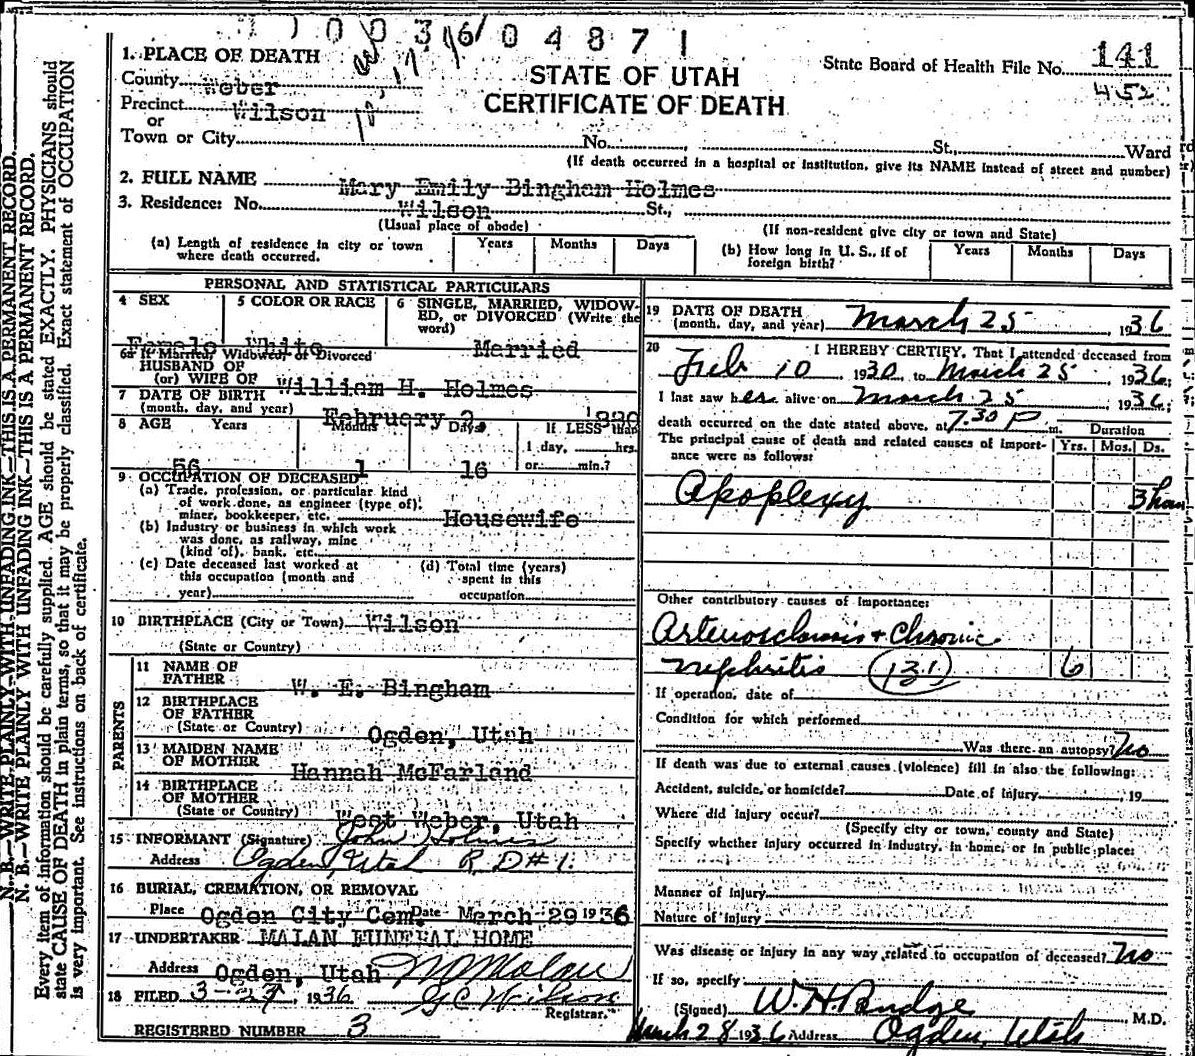 1003604871
1. PLACE OF DEATH
County Weber
Precinct Wilson
or
Town or City No. St., Ward
STATE OF UTAH
CERTIFICATE OF DEATH
State Board of Health File No. 141
452
(If death occurred in a hospital or institution, give its NAME instead of street and number)
2. FULL NAME Mary Emily Bingham Holmes
3. Residence: No. Wilson St.,
(Usual place of abode) (If non-resident give city or town and State)
(a) Length of residence in city or town where death occurred. Years Months Days
(b) How long in U. S., if of foreign birth? Years Months Days
PERSONAL AND STATISTICAL PARTICULARS
4 SEX Female
5 COLOR OR RACE White
6 SINGLE, MARRIED, WIDOWED, or DIVORCED (Write the word) Married
6a If Married, Widowed or Divorced
HUSBAND OF
(or) WIFE OF William H. Holmes
7 DATE OF BIRTH
(month, day, and year) February 9
8 AGE Years Months Days If LESS than
1 day, hrs.
56 1 16 or min.?
9 OCCUPATION OF DECEASED
(a) Trade, profession, or particular kind
of work done, as engineer (type of),
miner, bookkeeper, etc. Housewife
(b) Industry or business in which work
was done, as railway, mine
(kind of), bank, etc.
(c) Date deceased last worked at
this occupation (month and
year)
(d) Total time (years)
spent in this
occupation
10 BIRTHPLACE (City or Town) Wilson
(State or Country)
PARENTS
11 NAME OF
FATHER W. E. Bingham
12 BIRTHPLACE
OF FATHER
(State or Country) Ogden, Utah
13 MAIDEN NAME
OF MOTHER Hannah McFarland
14 BIRTHPLACE
OF MOTHER
(State or Country) West Weber, Utah
15 INFORMANT (Signature) John Holmes
Address Ogden, Utah R.D#1.
16 BURIAL, CREMATION, OR REMOVAL
Place Ogden City Cem. Date March 29 1936
17 UNDERTAKER MALAN FUNERAL HOME
Address Ogden, Utah
18 FILED 3-27, 1936 G C Wilson
Registrar.
REGISTERED NUMBER 3
19 DATE OF DEATH
(month, day, and year) March 25, 1936
20 I HEREBY CERTIFY, That I attended deceased from
Feb 10 1930, to March 25, 1936;
I last saw her alive on March 25 1936;
death occurred on the date stated above, at 7.30 P m.
The principal cause of death and related causes of importance were as follows:
Duration
Yrs. Mos. Ds.
Apoplexy 3 hours
Other contributory causes of importance:
Arteriosclerosis + Chronic
nephritis (131) 6
If operation, date of
Condition for which performed
Was there an autopsy? No
If death was due to external causes (violence) fill in also the following:
Accident, suicide, or homicide? Date of injury , 19
Where did injury occur?
(Specify city or town, county and State)
Specify whether injury occurred in industry, in home, or in public place:
Manner of injury
Nature of injury
Was disease or injury in any way related to occupation of deceased? No
If so, specify
(Signed) M.D.
March 28 1936 Address Ogden, Utah
N. B.—WRITE PLAINLY WITH UNFADING INK—THIS IS A PERMANENT RECORD.
N. B.—WRITE PLAINLY WITH UNFADING INK—THIS IS A PERMANENT RECORD.
Every item of information should be carefully supplied. AGE should be stated EXACTLY. PHYSICIANS should
state CAUSE OF DEATH in plain terms, so that it may be properly classified. Exact statement of OCCUPATION
is very important. See instructions on back of certificate.